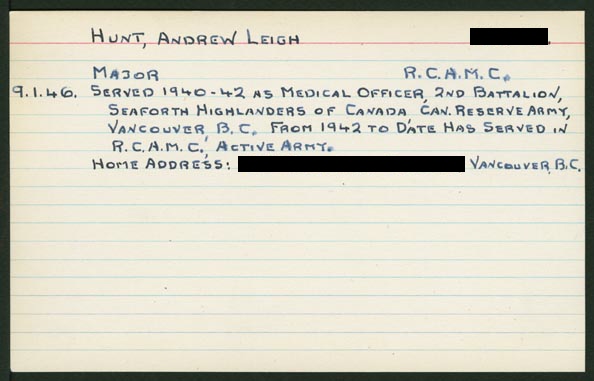 HUNT, ANDREW LEIGH
MAJOR R.C.A.M.C.
9.1.46. SERVED 1940-42 AS MEDICAL OFFICER, 2ND BATTALION,
SEAFORTH HIGHLANDERS OF CANADA, CAN. RESERVE ARMY,
VANCOUVER, B.C. FROM 1942 TO DATE HAS SERVED IN
R.C.A.M.C., ACTIVE ARMY.
HOME ADDRESS: VANCOUVER, B.C.